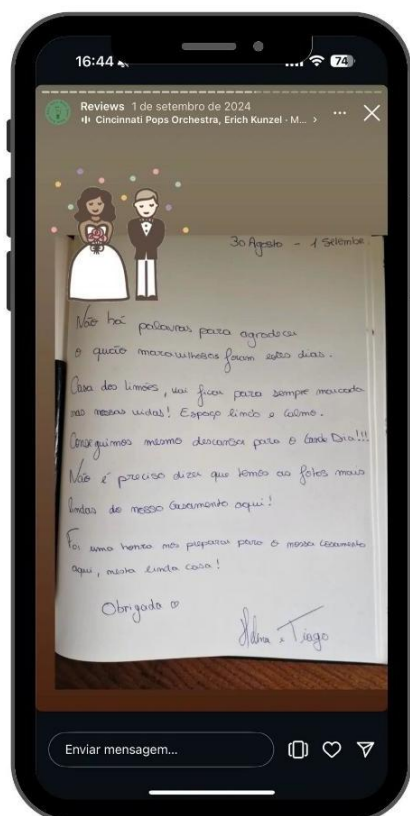 16:44
74
Reviews 1 de setembro de 2024
Cincinnati Pops Orchestra, Erich Kunzel · M... >
30 Agosto - 1 Setembro.
Não há palavras para agradecer
o quão maravilhosos foram estes dias.
Casa dos limões, vai ficar para sempre marcada
nas nossas vidas! Espaço lindo e calmo.
Conseguimos mesmo descansar para o Grande Dia!!!
Não é preciso dizer que temos as fotos mais
lindas do nosso Casamento aqui!
Foi uma honra nos preparar para o nosso casamento
aqui, nesta linda casa!
Obrigada ♡
Tiago
Enviar mensagem...